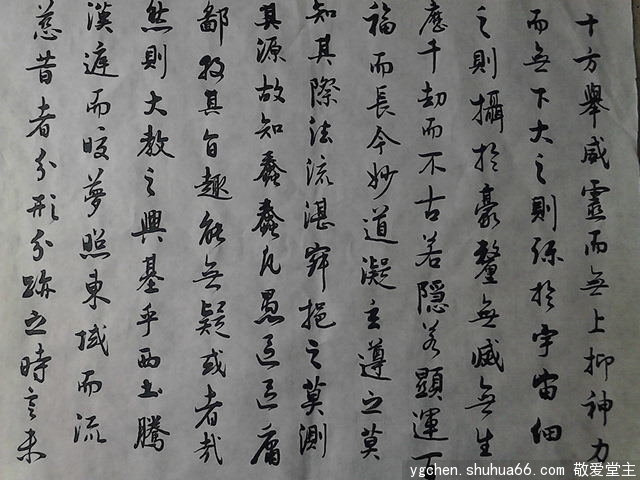 十方舉威靈而無上抑神力
而無下大之則弥於宇宙細
之則攝於豪氂無滅無生
歷千劫而不古若隱若顯運百
福而長今妙道凝玄遵之莫
知其際法流湛寂挹之莫測
其源故知蠢蠢凡愚區區庸
鄙投其旨趣能無疑或者哉
然則大教之興基乎西土騰
漢庭而皎夢照東域而流
慈昔者分形分跡之時言未
ygchen.shuhua66.com 敬爱堂主